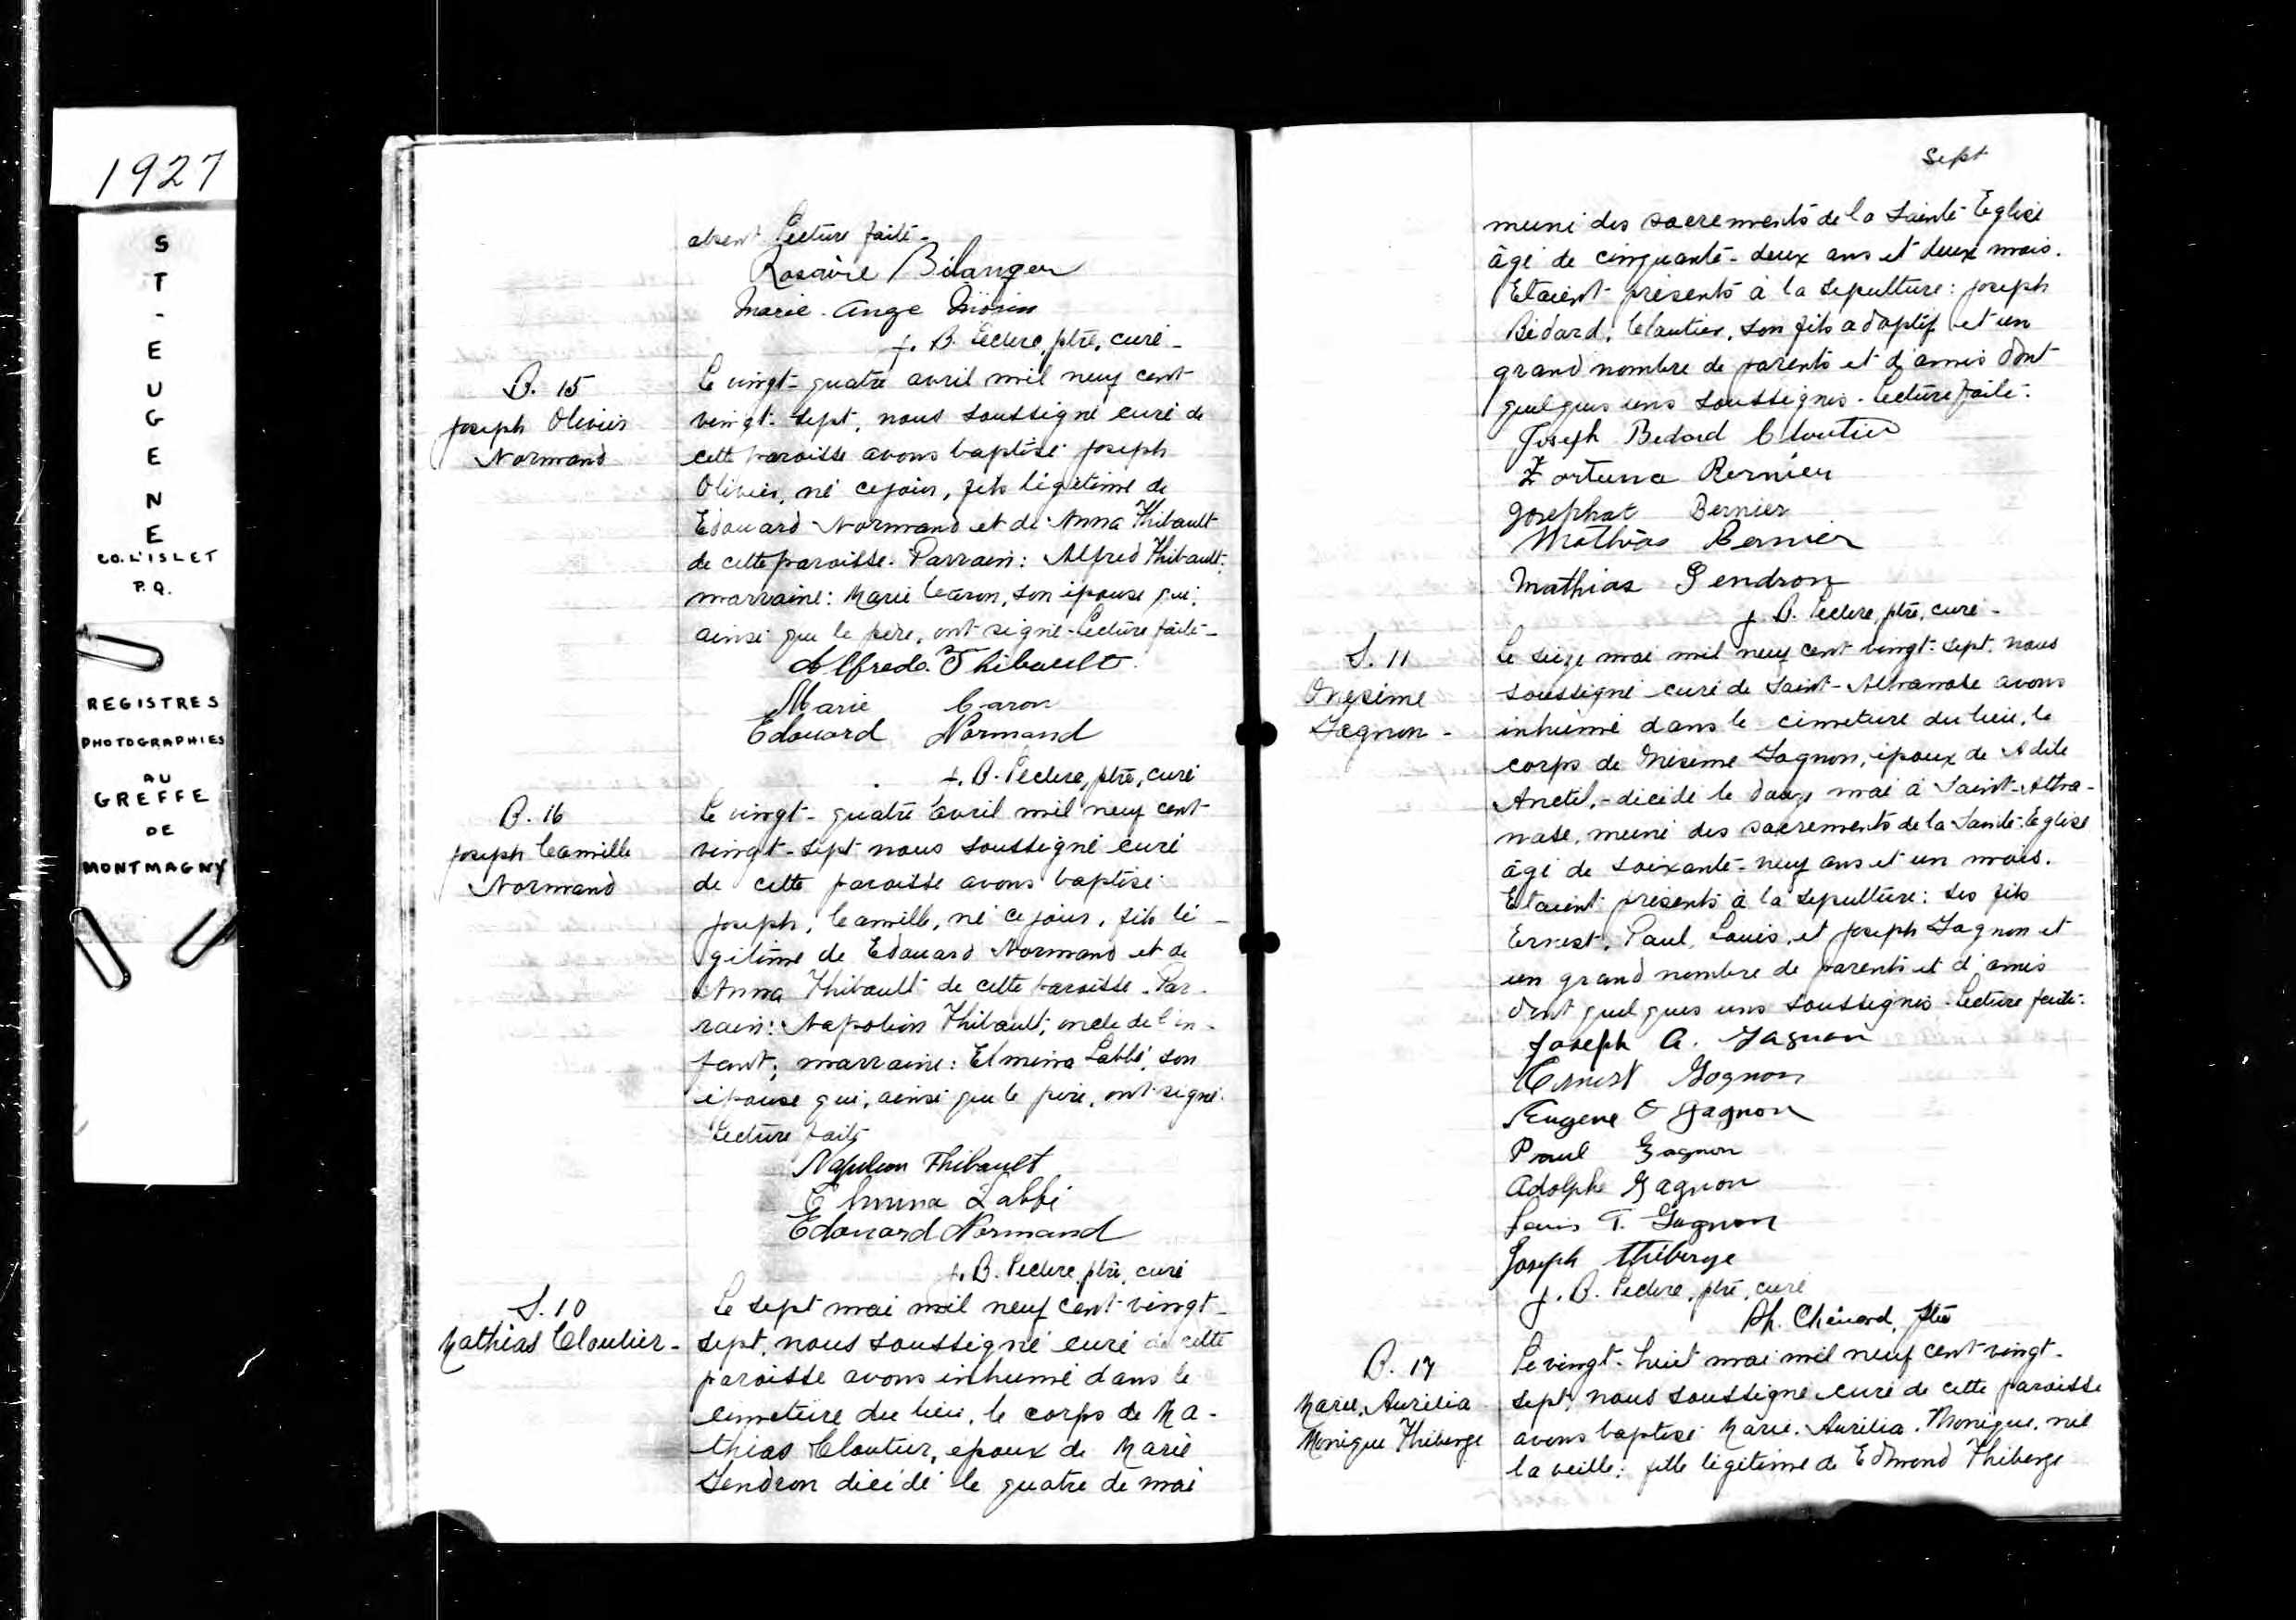 1927
ST-EUGENE
CO. L'ISLET
P.Q.
REGISTRES
PHOTOGRAPHIES
AU
GREFFE
DE
MONTMAGNY
absent Lecture faite -
Rosaire Bélanger
Marie-Ange Morin
J. B. Leclerc, ptre, curé -
B. 15
Joseph Olivier
Normand
Le vingt-quatre avril mil neuf cent
vingt-sept, nous soussigné curé de
cette paroisse avons baptisé Joseph
Olivier, né ce jour, fils légitime de
Edouard Normand et de Anna Thibault
de cette paroisse. Parrain: Alfred Thibault;
marraine: Marie Caron, son épouse qui,
ainsi que le père, ont signé - Lecture faite -
Alfred Thibault.
Marie Caron
Edouard Normand
J. B. Leclerc, ptre, curé
B. 16
Joseph Camille
Normand
Le vingt-quatre avril mil neuf cent
vingt-sept nous soussigné curé
de cette paroisse avons baptisé
Joseph, Camille, né ce jour, fils lé-
gitime de Edouard Normand et de
Anna Thibault de cette paroisse - Par-
rain: Napoléon Thibault, oncle de l'en-
fant; marraine: Elmina Labbé, son
épouse qui, ainsi que le père, ont signé.
Lecture faite
Napoleon Thibault
Elmina Labbé
Edouard Normand
J. B. Leclerc, ptre, curé
S. 10
Mathias Cloutier -
Le sept mai mil neuf cent vingt-
sept, nous soussigné curé de cette
paroisse avons inhumé dans le
cimetière du lieu, le corps de Ma-
thias Cloutier, époux de Marie
Gendron décédé le quatre de mai
Sept
muni des sacrements de la Sainte-Eglise
âgé de cinquante-deux ans et deux mois.
Etaient présents à la sépulture: Joseph
Bédard, Cloutier, son fils adoptif et un
grand nombre de parents et d'amis dont
quelques uns soussignés - Lecture faite -
Joseph Bedard Cloutier
Fortuna Bernier
Josephat Bernier
Mathias Bernier
Mathias Gendron
J. B. Leclerc, ptre, curé -
S. 11
Onésime
Gagnon -
Le seize mai mil neuf cent vingt-sept, nous
soussigné curé de Saint-Athanase avons
inhumé dans le cimetière du lieu, le
corps de Onésime Gagnon, époux de Adèle
Anctil, - décédé le douze mai à Saint-Atha-
nase, muni des sacrements de la Sainte-Eglise
âgé de soixante-neuf ans et un mois.
Etaient présents à la sépulture: ses fils
Ernest, Paul, Louis, et Joseph Gagnon et
un grand nombre de parents et d'amis
dont quelques uns soussignés - Lecture faite -
Joseph A. Gagnon
Ernest Gagnon
Eugene O Gagnon
Paul Gagnon
Adolphe Gagnon
Louis T. Gagnon
Joseph Théberge
J. B. Leclerc, ptre, curé
Ph. Chénard, ptre
B. 17
Marie, Aurélia
Monique Théberge
Le vingt-huit mai mil neuf cent vingt-
sept, nous soussigné curé de cette paroisse
avons baptisé Marie, Aurélia, Monique, née
la veille; fille légitime de Edmond Théberge